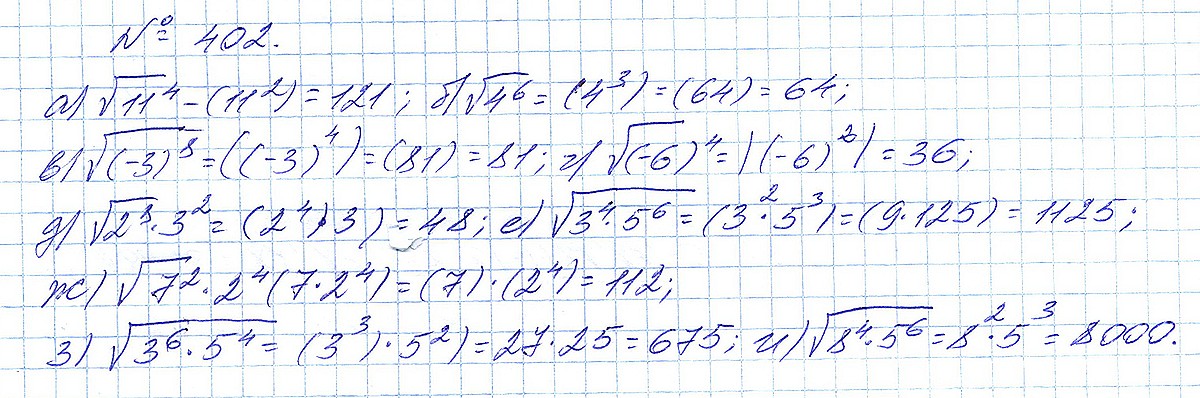 № 402.
а) √11⁴ - (11²) = 121; б) √4⁶ = (4³) = (64) = 64;
в) √(-3)⁸ = ((-3)⁴) = (81) = 81; г) √(-6)⁴ = |(-6)²| = 36;
д) √2⁸·3² = (2⁴·3) = 48; е) √3⁴·5⁶ = (3²·5³) = (9·125) = 1125;
ж) √7²·2⁴(7·2⁴) = (7)·(2⁴) = 112;
з) √3⁶·5⁴ = (3³)·5²) = 27·25 = 675; и) √8⁴·5⁶ = 8²·5³ = 8000.